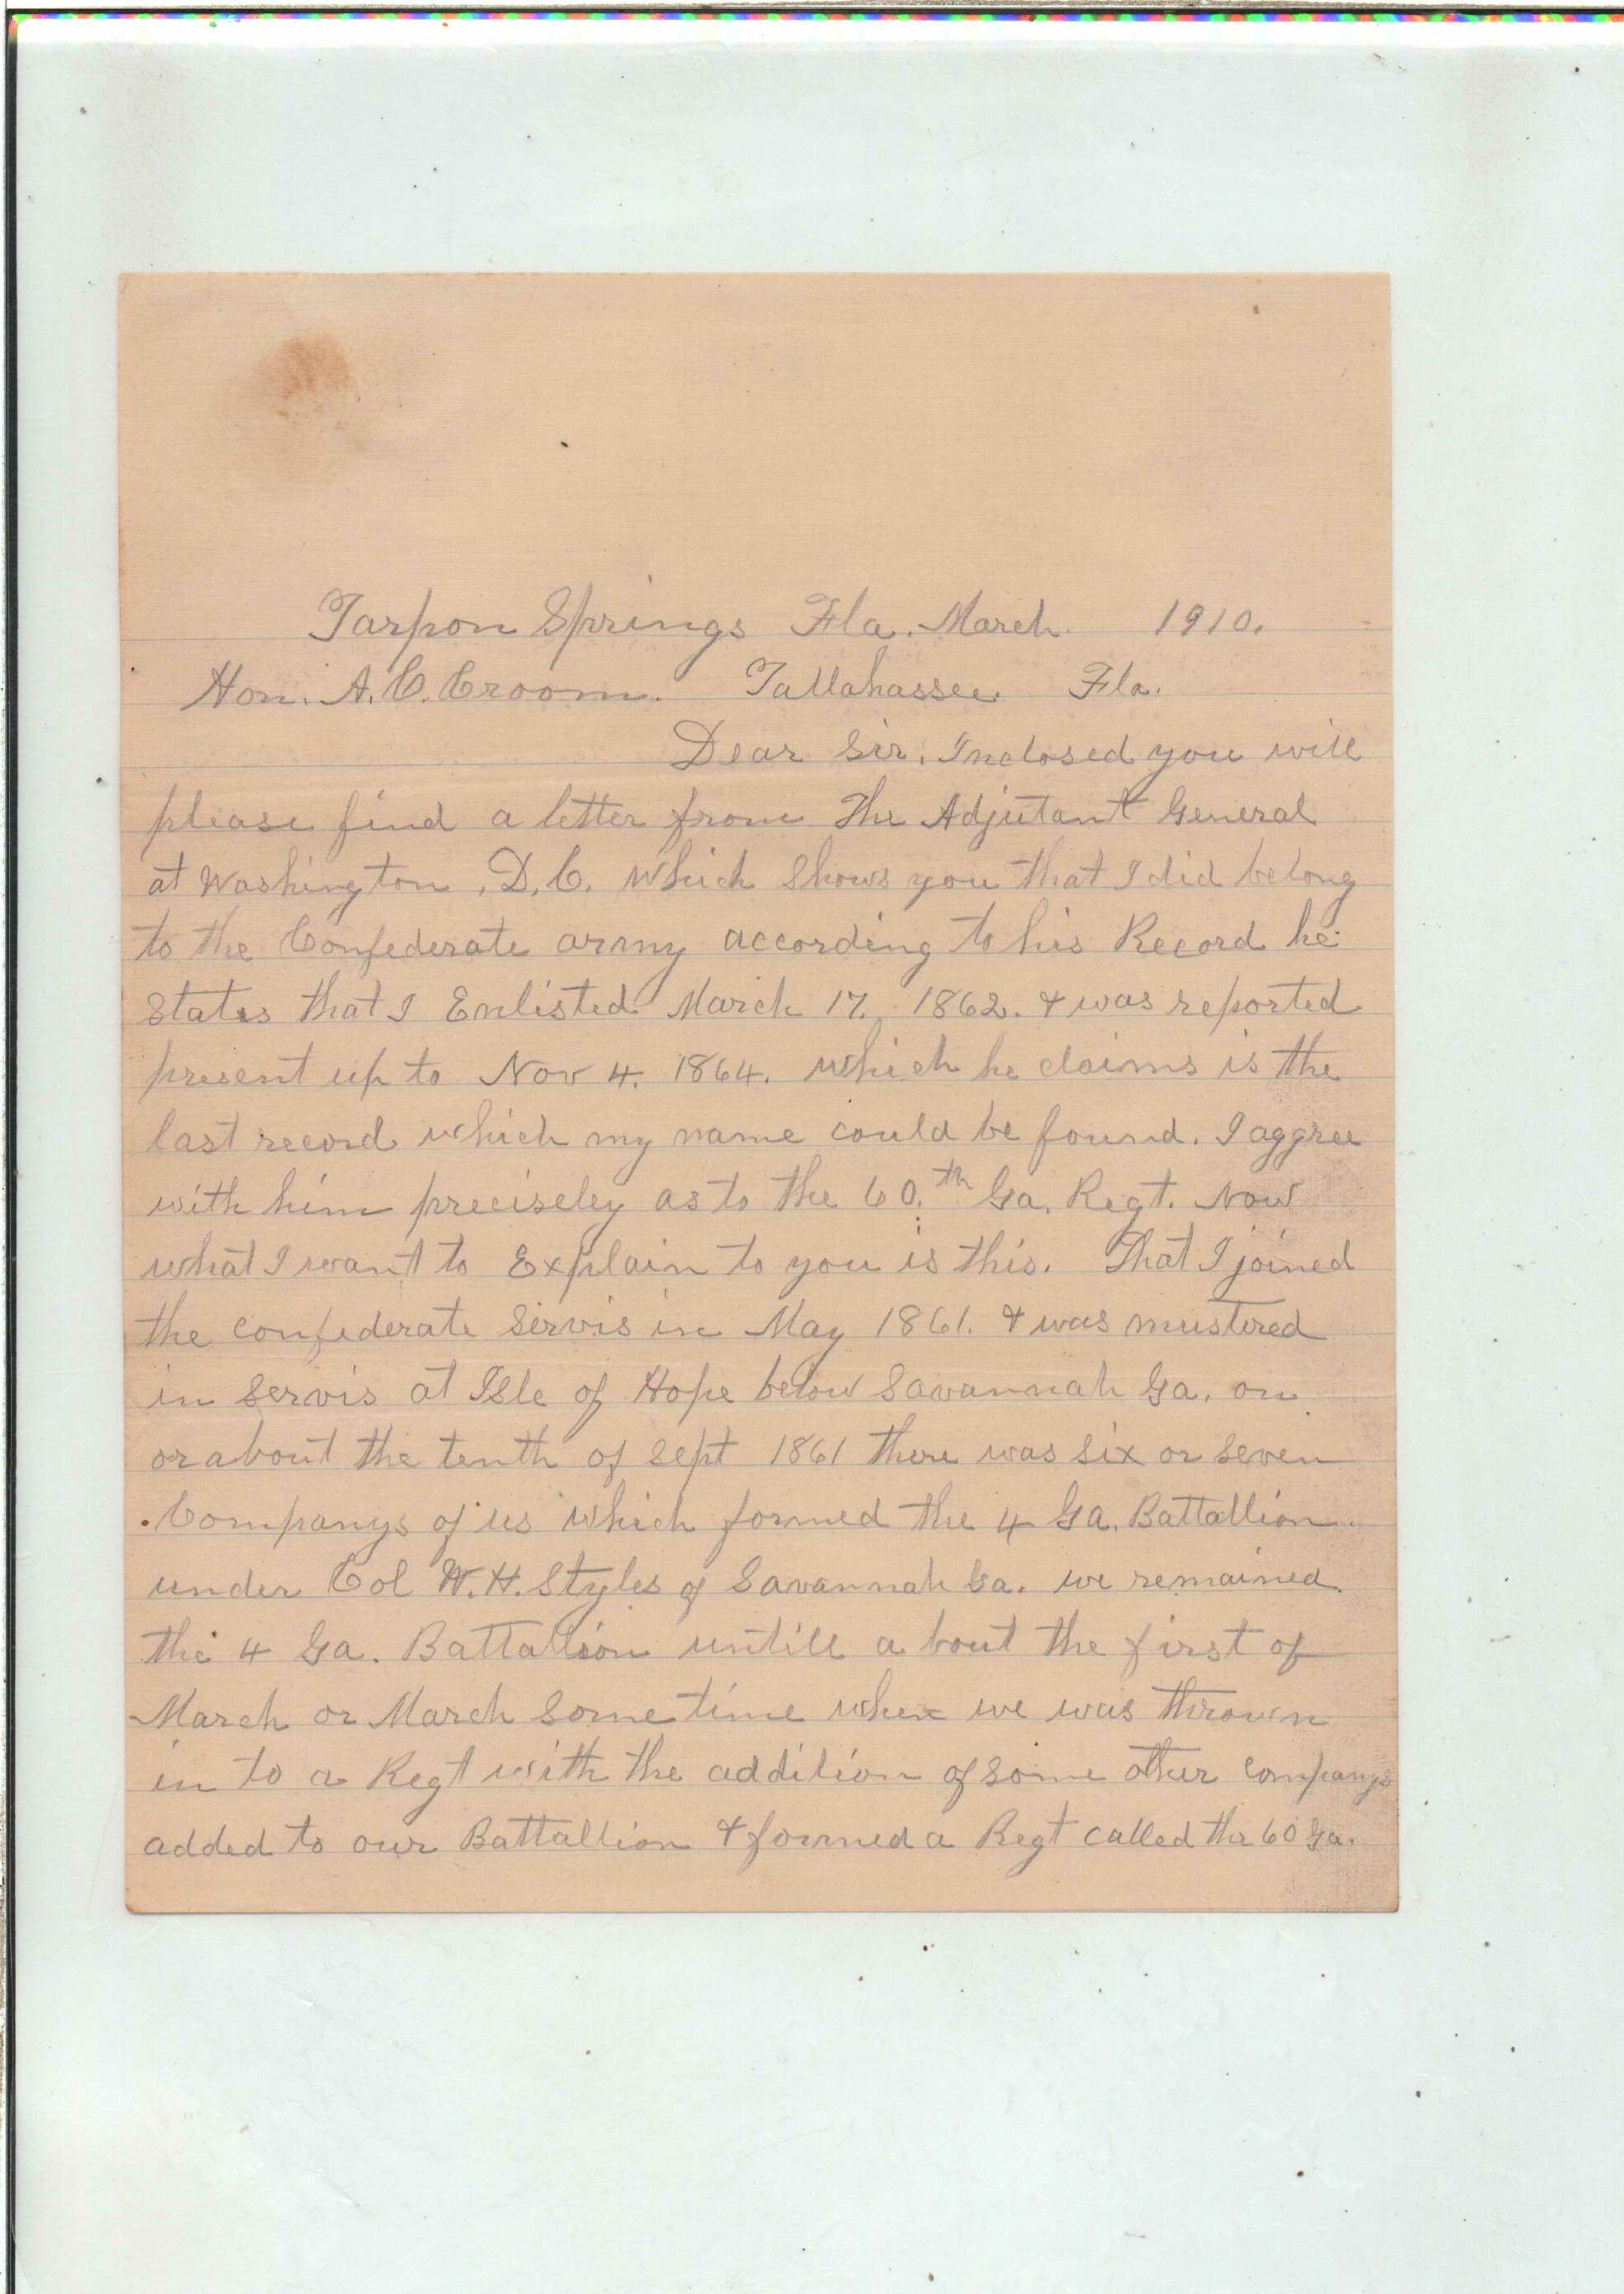 Tarpon Springs Fla. March 1910.
Hon. A.C. Croom. Tallahassee Fla.
Dear Sir. Inclosed you will
please find a letter from The Adjutant General
at Washington, D.C. which Shows you that I did belong
to the Confederate army according to his Record he
States that I Enlisted March 17. 1862. & was reported
present up to Nov 4. 1864. which he claims is the
last record which my name could be found. I aggree
with him preciseley as to the 60.th Ga. Regt. Now
what I want to Explain to you is this. That I joined
the confederate Servis in May 1861. & was mustered
in Servis at Isle of Hope below Savannah Ga. on
or about the tenth of Sept 1861 there was six or seven
Companys of us which formed the 4 Ga. Battallion
under Col W.H. Styles of Savannah Ga. we remained
the 4 Ga. Battallion untill a bout the first of
March or March sometime when we was thrown
in to a Regt with the addition of some other companys
added to our Battallion & formed a Regt called the 60 Ga.